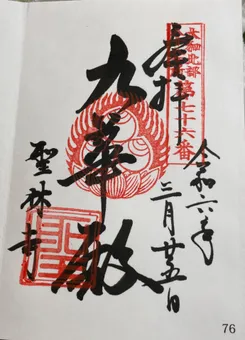 奉拝
第七十六番
令和六年
三月廿五日
九華殿
聖林寺
76